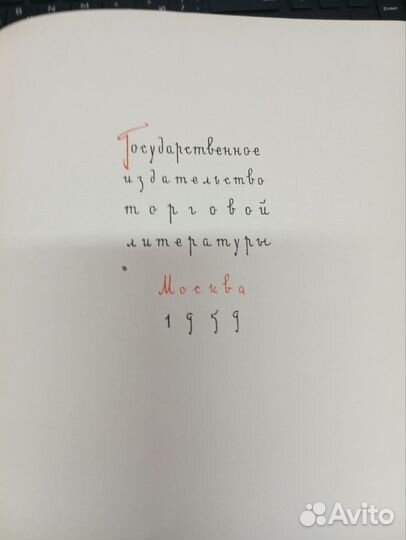 Государственное
издательство
торговой
литературы
Москва
1959
Avito